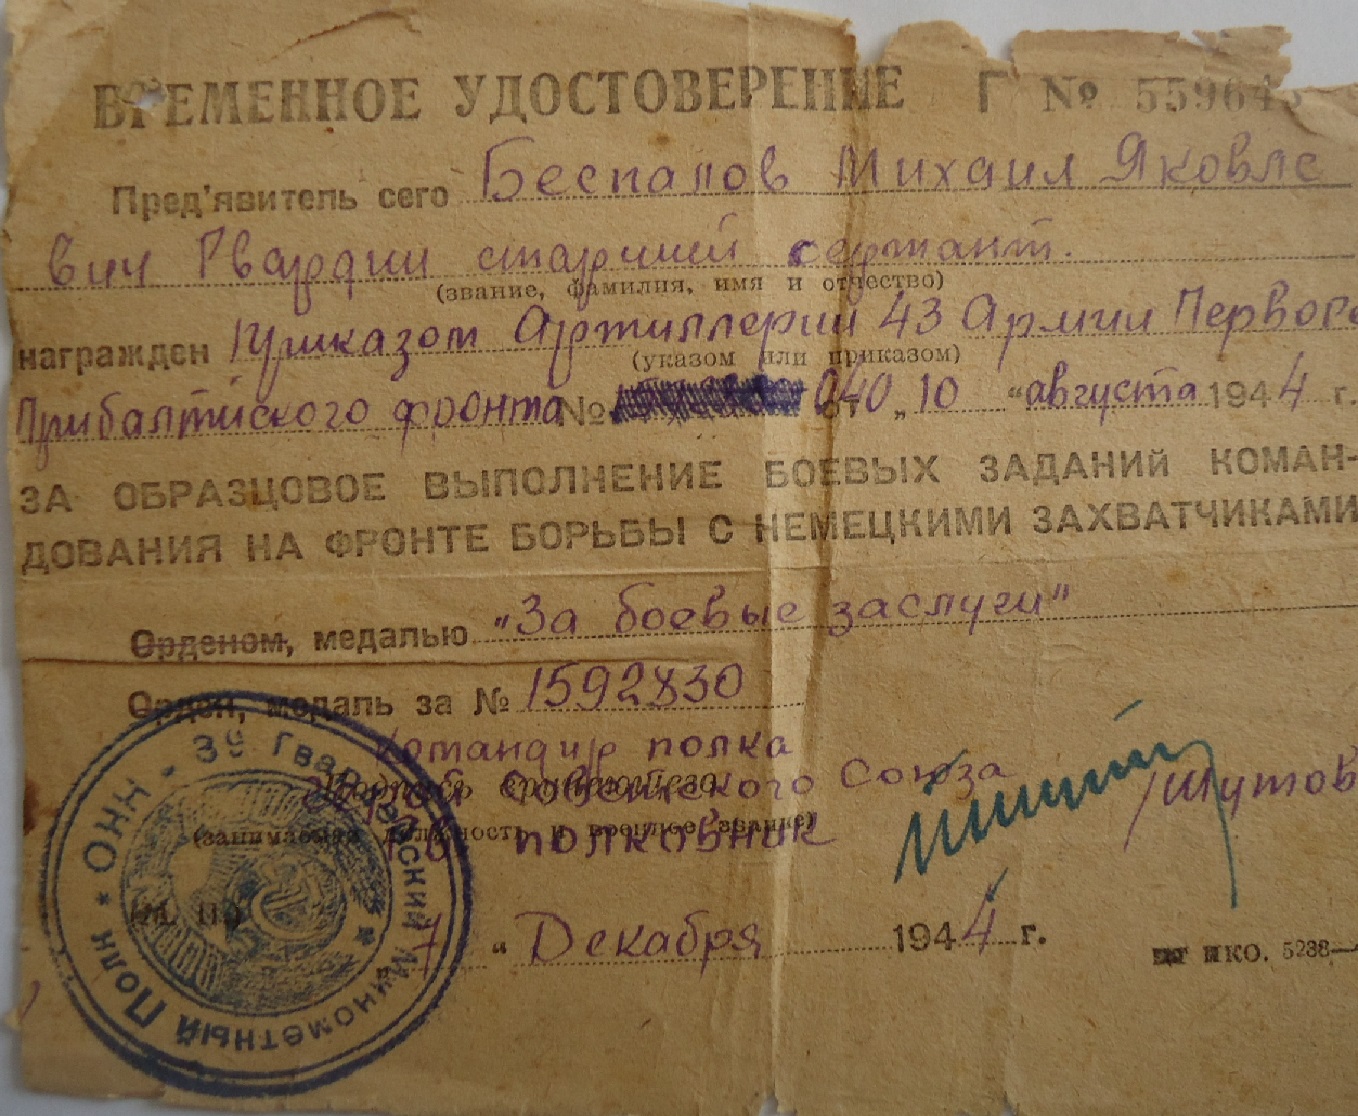 ВРЕМЕННОЕ УДОСТОВЕРЕНИЕ Г № 559643
Пред'явитель сего Беспалов Михаил Яковле
вич Гвардии старший сержант.
(звание, фамилия, имя и отчество)
награжден Приказом Артиллерии 43 Армии Первого
(указом или приказом)
Прибалтийского фронта № 040 от „10 “ августа 1944 г.
ЗА ОБРАЗЦОВОЕ ВЫПОЛНЕНИЕ БОЕВЫХ ЗАДАНИЙ КОМАН-
ДОВАНИЯ НА ФРОНТЕ БОРЬБЫ С НЕМЕЦКИМИ ЗАХВАТЧИКАМИ
Орденом, медалью "За боевые заслуги"
Орден, медаль за № 1592830
Командир полка
Герой Советского Союза
Подпись
(занимаемая должность и военное звание)
полковник /Шутов
М. П.
7 “ Декабря 1944 г.
НКО. 5238—
ОНН - 39 Гвардейский Минометный Полк